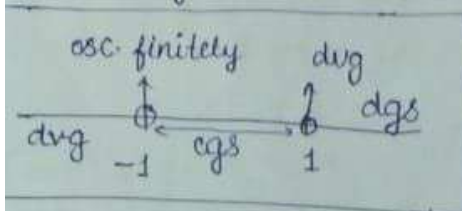 osc. finitely dvg
dvg cgs dgs
-1 1